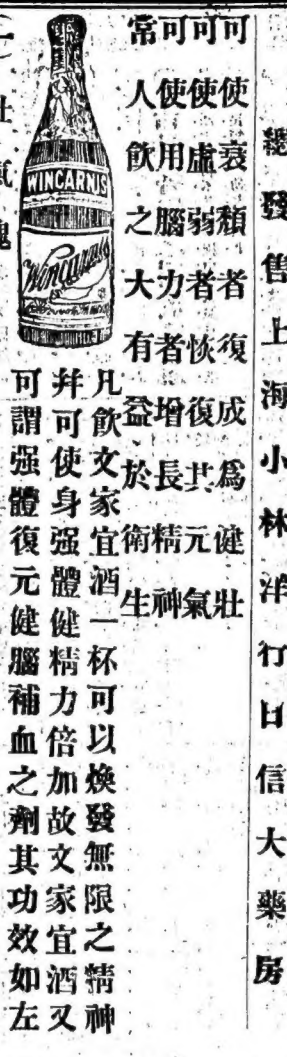 總發售上海小林洋行日信大藥房
可使衰頹者復成爲健壯
可使虛弱者恢復其元氣
可使用腦力者增長精神
常人飲之大有益於衛生
WINCARNIS
Wincarnis
凡飲文家宜酒一杯可以煥發無限之精神
幷可使身强體健精力倍加故文家宜酒又
可謂强體復元健腦補血之劑其功效如左